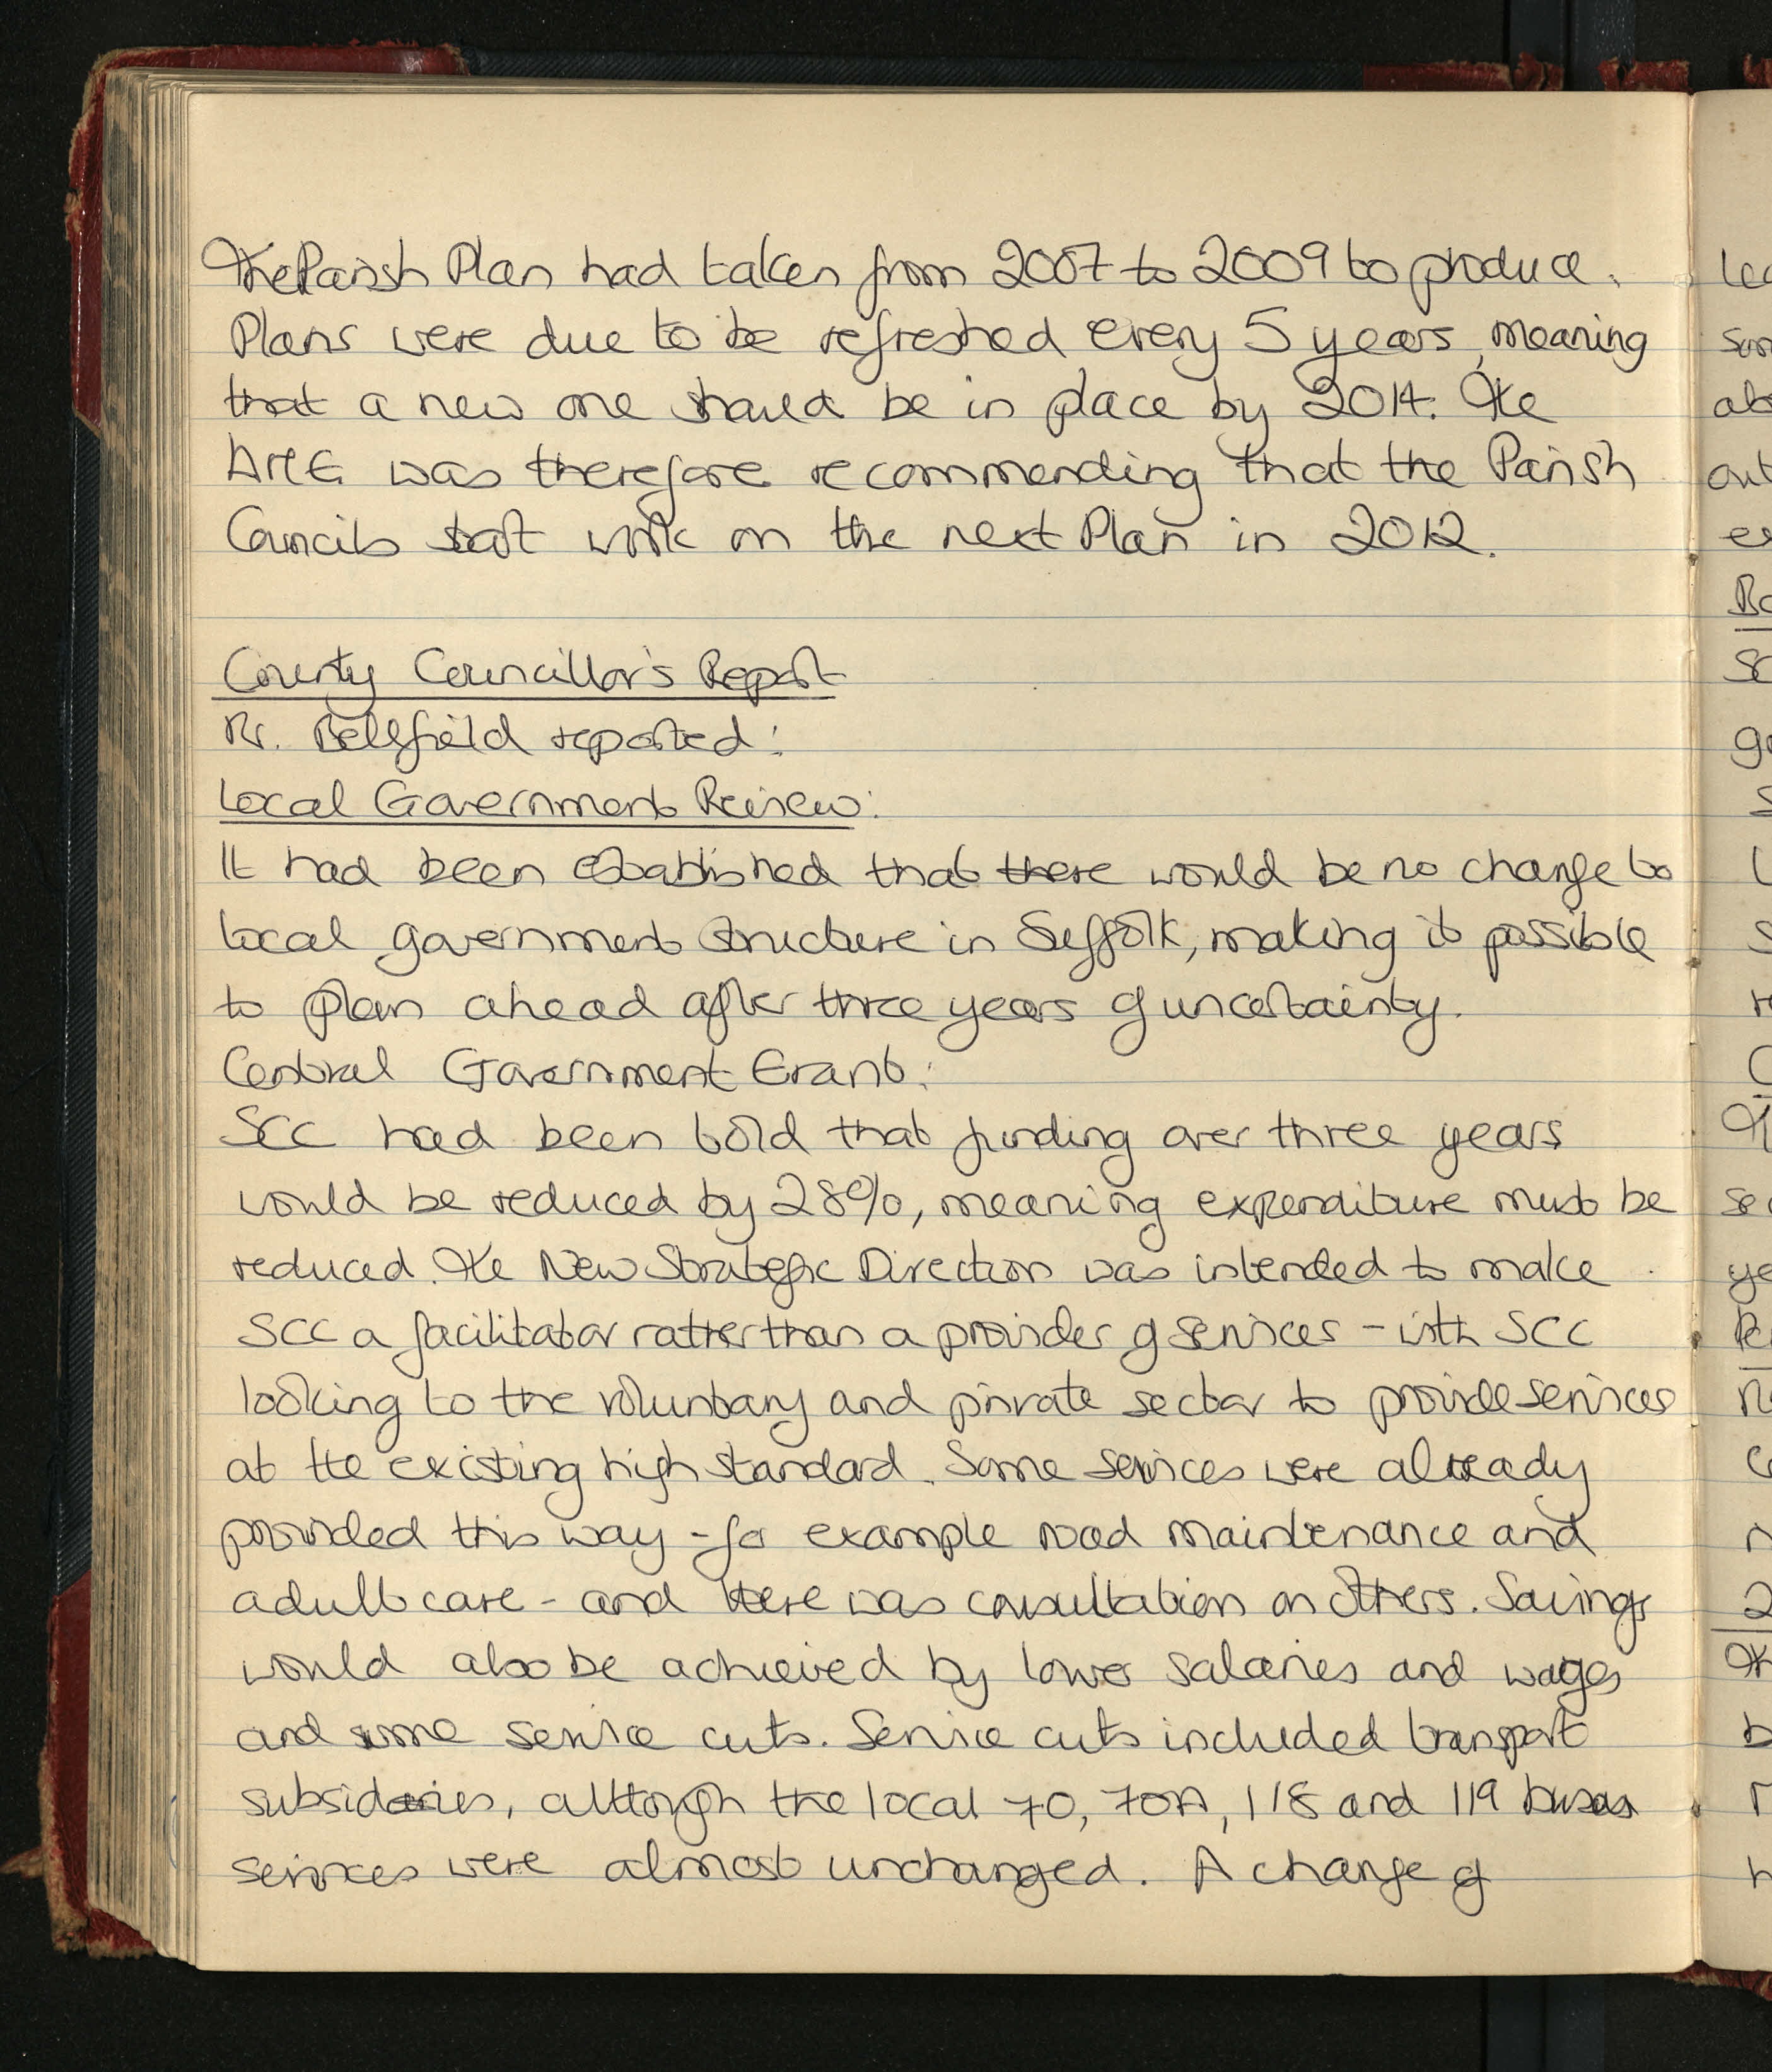 The Parish Plan had taken from 2007 to 2009 to produce.
Plans were due to be refreshed every 5 years, meaning
that a new one should be in place by 2014. The
was therefore recommending that the Parish
Councils start work on the next Plan in 2012.
County Councillor's Report
Mr. Bellfield reported:
Local Government Review:
It had been established that there would be no change to
local government structure in Suffolk, making it possible
to plan ahead after three years of uncertainty.
Central Government Grant:
SCC had been told that funding over three years
would be reduced by 28%, meaning expenditure must be
reduced. The New Strategic Direction was intended to make
SCC a facilitator rather than a provider of services - with SCC
looking to the voluntary and private sector to provide services
at the existing high standard. Some services were already
provided this way - for example road maintenance and
adult care - and there was consultation on others. Savings
would also be achieved by lower salaries and wages
and some service cuts. Service cuts included transport
subsidaries, although the local 70, 70A, 118 and 119 buses
services were almost unchanged. A change of